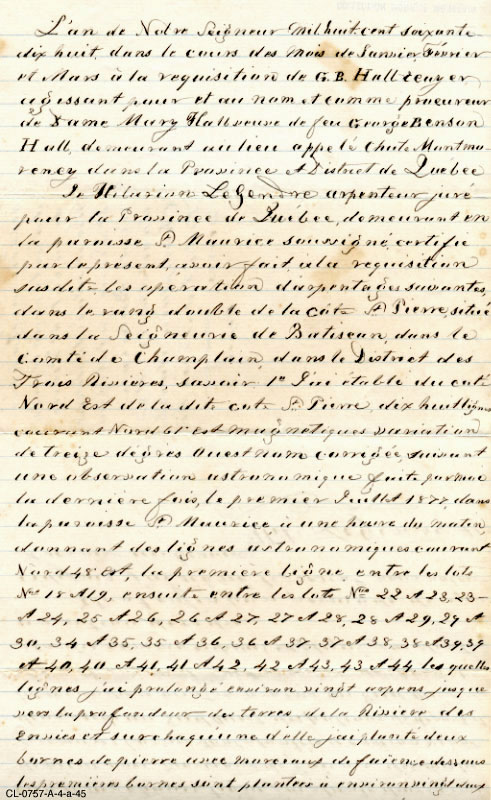 L'an de Notre Seigneur Mil huit cent soixante
dix huit, dans le cours des mois de Janvier, Février
et Mars à la requisition de G. B. Hall écuyer
agissant pour et au nom et comme procureur
de Dame Mary Hall veuve de feu George Benson
Hall, demeurant au lieu appelé Chute Montmo-
rency dans la Province et District de Quebec
Je Hilarion LeGendre arpenteur juré
pour la Province de Quebec, demeurant en
la paroisse St Maurice soussigné, certifie
par le présent, avoir fait, à la requisition
susdite, les operation d'arpentages suivantes,
dans le rang double de la côte St Pierre, situé
dans la Seigneurie de Batiscan, dans le
Comté de Champlain, dans le District des
Trois Rivières, savoir 1o J'ai établé du coté
Nord Est de la dite cote St Pierre, dix huit lignes
courant Nord 61 Est magnetiques variation
de treize dégres Ouest nom corrigée, suivant
une observation astronomique faite par moi
la dernière fois, le premier Juillet 1877, dans
la paroisse St Maurice à une heure du matin,
donnant des lignes astronomiques courant
Nord 48 Est, la première ligne entre les lots
Nos 18 et 19, ensuite entre les lots Nos 22 et 23, 23
et 24, 25 et 26, 26 et 27, 27 et 28, 28 et 29, 29 et
30, 34 et 35, 35 et 36, 36 et 37, 37 et 38, 38 et 39, 39
et 40, 40 et 41, 41 et 42, 42 et 43, 43 et 44, les quelles
lignes j'ai prolongé environ vingt arpens jusque
vers la profondeur des terres de la Rivière des
Envies et sur chaqu'une d'elle j'ai planté deux
bornes de pierre avec morceaux de faience dessous
les premières bornes sont plantées à environ vingt deux
CL-0757-A-4-a-45